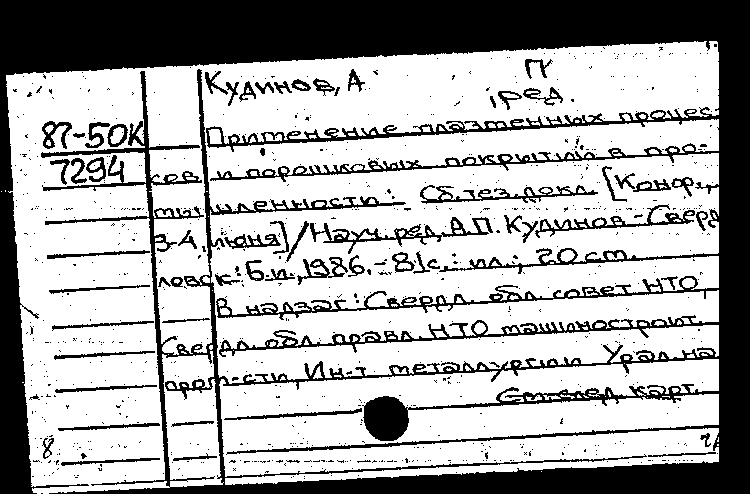 Кудинов, А П
ред.
87-50К Применение плазменных процес-
7294 сов и порошковых покрытий в про-
мышленности: Сб. тез. докл. [Конф.,
3-4 июня] / Науч. ред. А.П. Кудинов - Сверд
ловск: Б.и., 1986. - 81с.: ил.; 20 см.
В надзаг: Свердл. обл. совет НТО,
Свердл. обл. правл. НТО машиностроит.
пром-сти, Ин-т металлургии Урал. на
См. след. карт.
8